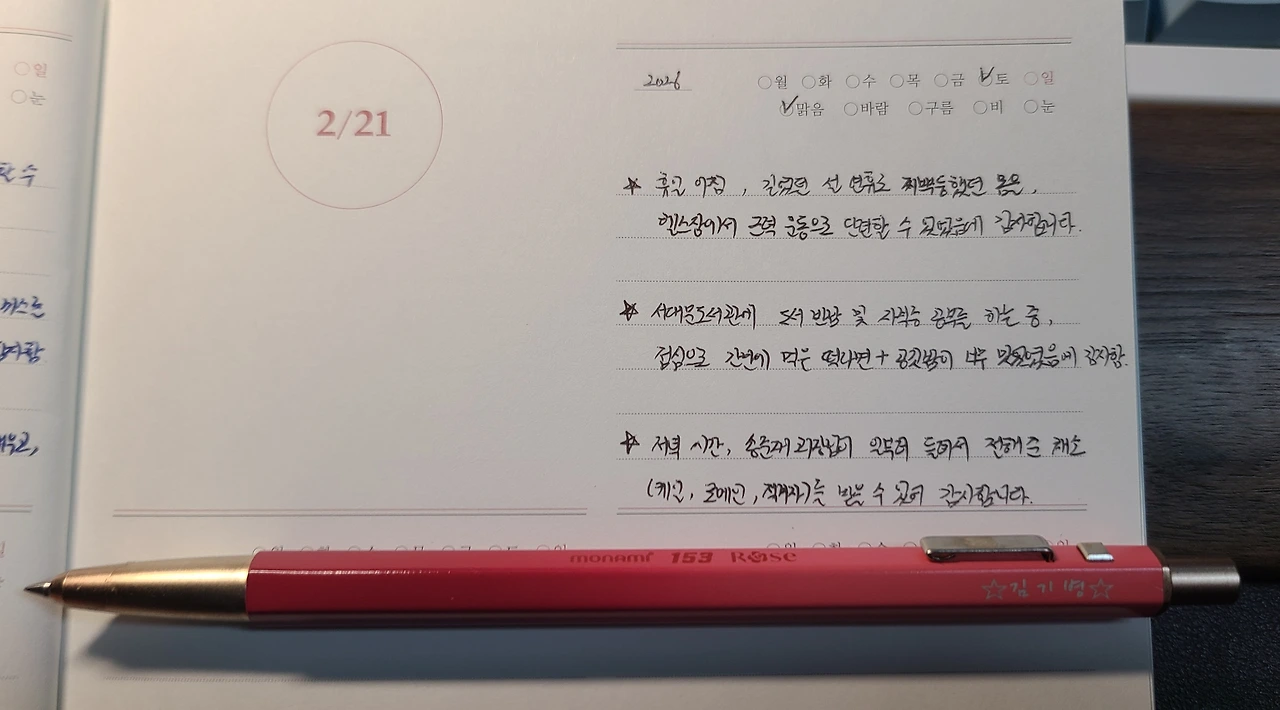 2/21
2026 월 화 수 목 금 토 일
맑음 바람 구름 비 눈
휴일 아침, 길었던 설 연휴로 찌뿌둥했던 몸을,
헬스장에서 근력 운동으로 단련할 수 있었음에 감사합니다.
서대문도서관에 도서 반납 및 자격증 공부를 하는 중,
점심으로 간편에 먹은 떡라면 + 공깃밥이 너무 맛있었음에 감사함.
저녁 시간, 송준재 과장님이 일부러 들러서 전해 준 채소
(케일, 로메인, 적겨자)를 받을 수 있어 감사합니다.
일
눈
할 수
monami 153 Rose
☆김기병☆